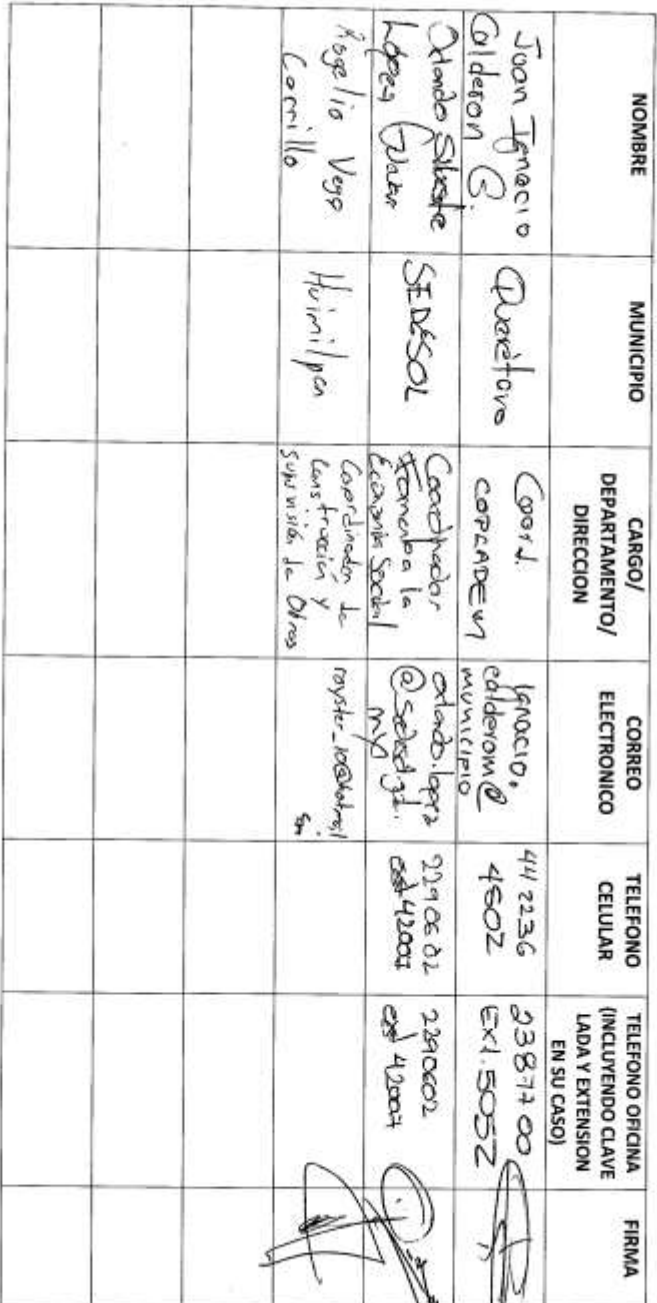 NOMBRE
MUNICIPIO
CARGO/
DEPARTAMENTO/
DIRECCION
CORREO
ELECTRONICO
TELEFONO
CELULAR
TELEFONO OFICINA
(INCLUYENDO CLAVE
LADA Y EXTENSION
EN SU CASO)
FIRMA
Juan Ignacio
Calderon G.
Querétaro
Coord.
COPLADEM
ignacio.
calderom@
municipio
442236
4602
2387700
Ext. 5052
Orlando Silvestre
López
SEDESOL
Coordinador
Fomento a la
Economía Social
orlando.lopez
@sedesol.gob.
mx
2290602
ext 42007
2290602
ext 42007
Rogelio Vega
Carrillo
Huimilpan
Coordinador de
Construcción y
Supervisión de Obras
royster_10@hotmail
com